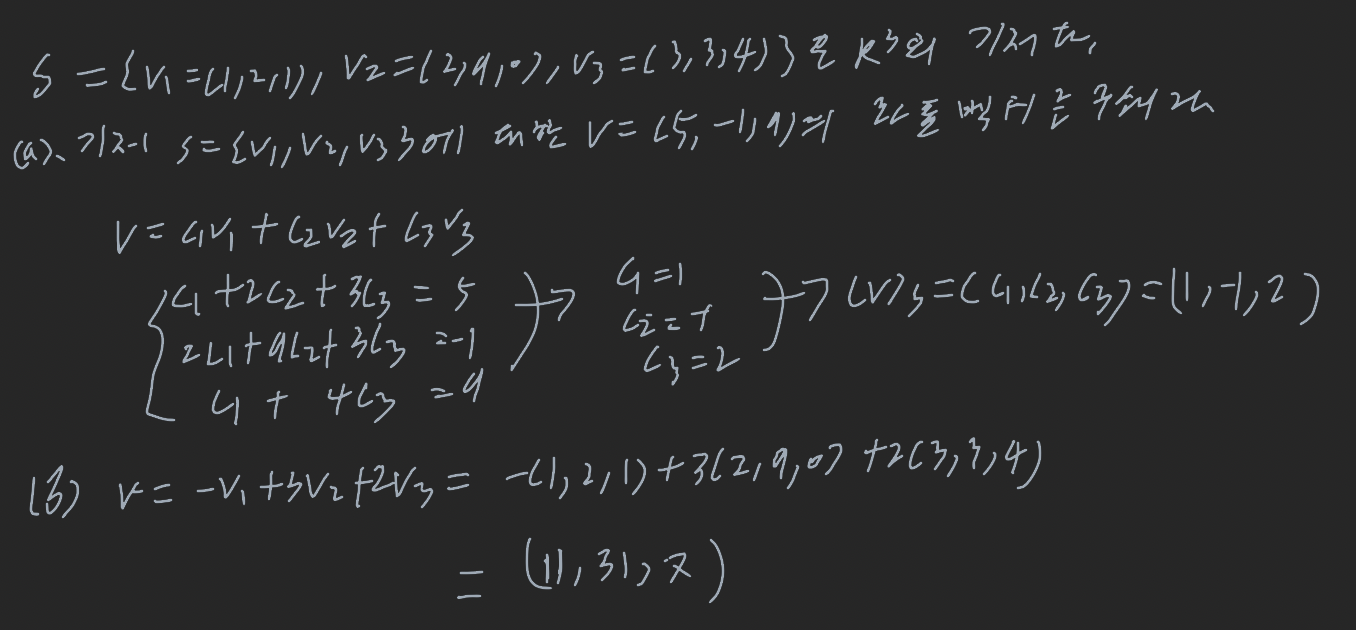 S = {v1 = (1,2,1), v2 = (2,9,0), v3 = (3,3,4)}은 R³의 기저다.
(a). 기저 S = {v1, v2, v3}에 대한 v = (5, -1, 9)의 좌표벡터를 구해라
v = c1v1 + c2v2 + c3v3
c1 + 2c2 + 3c3 = 5
2c1 + 9c2 + 3c3 = -1
c1 + 4c3 = 9
→ c1 = 1
c2 = -1
c3 = 2
→ (v)s = (c1, c2, c3) = (1, -1, 2)
(b) v = -v1 + 3v2 + 2v3 = -(1, 2, 1) + 3(2, 9, 0) + 2(3, 3, 4)
= (11, 31, 7)